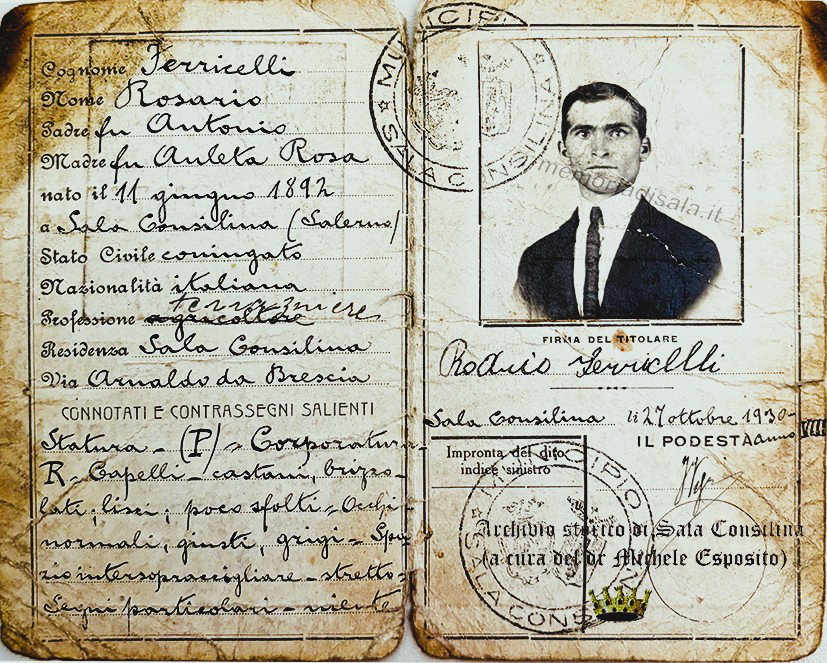 Cognome Ferricelli
Nome Rosario
Padre fu Antonio
Madre fu Auleta Rosa
nato il 11 giugno 1892
a Sala Consilina (Salerno)
Stato Civile coniugato
Nazionalità italiana
Professione agricoltore
Residenza Sala Consilina
Via Arnaldo da Brescia
CONNOTATI E CONTRASSEGNI SALIENTI
Statura - (P) - Corporatura -
R - Capelli - castani, brizzo-
lati, lisci, poco folti - Occhi -
normali, giusti, grigi - Spa-
zio intersopraccigliare - stretto -
Segni particolari - niente
MUNICIPIO
SALA CONSILINA
memoriadisala.it
FIRMA DEL TITOLARE
Rosario Ferricelli
Sala Consilina li 27 ottobre 1930 - anno VIII
IL PODESTÀ
Impronta del dito
indice sinistro
MUNICIPIO
SALA CONSILINA
Archivio storico di Sala Consilina
(a cura del dr Michele Esposito)